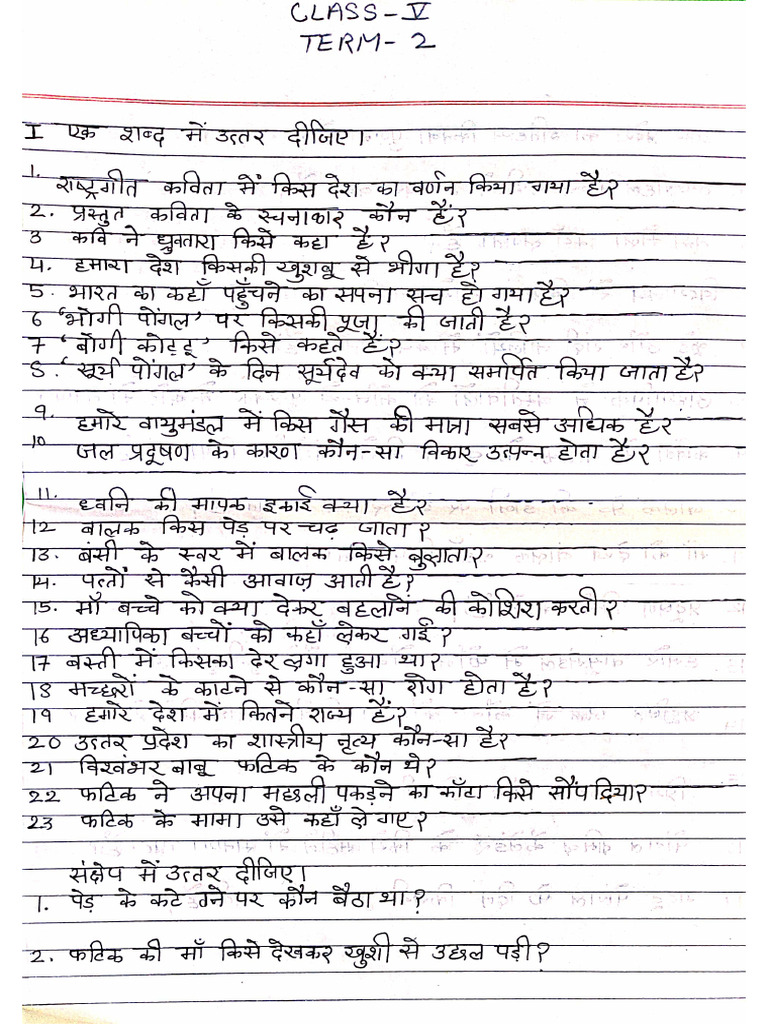 CLASS-V
TERM-2
I एक शब्द में उत्तर दीजिए।
1. राष्ट्रगीत कविता में किस देश का वर्णन किया गया है?
2. प्रस्तुत कविता के रचनाकार कौन हैं?
3 कवि ने ध्रुवतारा किसे कहा है?
4. हमारा देश किसकी खुशबू से भीगा है?
5. भारत का कहाँ पहुँचने का सपना सच हो गया है?
6 'भोगी पोंगल' पर किसकी पूजा की जाती है?
7 'बोगी कोट्टू' किसे कहते हैं?
8. 'सूर्य पोंगल' के दिन सूर्यदेव को क्या समर्पित किया जाता है?
9. हमारे वायुमंडल में किस गैस की मात्रा सबसे अधिक है?
10 जल प्रदूषण के कारण कौन-सा विकार उत्पन्न होता है?
11. ध्वनि की मापक इकाई क्या है?
12 बालक किस पेड़ पर चढ़ जाता?
13. बंसी के स्वर में बालक किसे बुलाता?
14. पत्तों से कैसी आवाज़ आती है?
15. माँ बच्चे को क्या देकर बहलाने की कोशिश करती?
16 अध्यापिका बच्चों को कहाँ लेकर गई?
17 बस्ती में किसका ढेर लगा हुआ था?
18 मच्छरों के काटने से कौन-सा रोग होता है?
19 हमारे देश में कितने राज्य हैं?
20 उत्तर प्रदेश का शास्त्रीय नृत्य कौन-सा है?
21 विश्वंभर बाबू फटिक के कौन थे?
22 फटिक ने अपना मछली पकड़ने का काँटा किसे सौंप दिया?
23 फटिक के मामा उसे कहाँ ले गए?
संक्षेप में उत्तर दीजिए।
1. पेड़ के कटे तने पर कौन बैठा था?
2. फटिक की माँ किसे देखकर खुशी से उछल पड़ी?